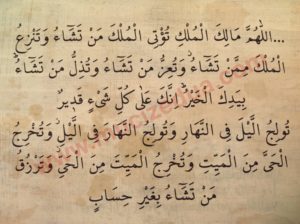 ...اَللّٰهُمَّ مَالِكَ الْمُلْكِ تُؤْتِى الْمُلْكَ مَنْ تَشَٓاءُ وَتَنْزِعُ
الْمُلْكَ مِمَّنْ تَشَٓاءُۘ وَتُعِزُّ مَنْ تَشَٓاءُ وَتُذِلُّ مَنْ تَشَٓاءُۜ
بِيَدِكَ الْخَيْرُۜ اِنَّكَ عَلٰى كُلِّ شَىْءٍ قَدِيرٌ
تُولِجُ الَّيْلَ فِى النَّهَارِ وَتُولِجُ النَّهَارَ فِى الَّيْلِۘ وَتُخْرِجُ
الْحَىَّ مِنَ الْمَيِّتِ وَتُخْرِجُ الْمَيِّتَ مِنَ الْحَىِّۘ وَتَرْزُقُ
مَنْ تَشَٓاءُ بِغَيْرِ حِسَابٍ